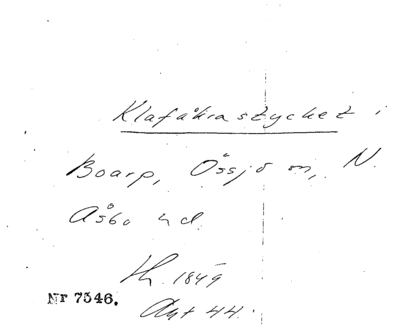 Klafåkrastycket i
Boarp, Össjö sn, N.
Åsbo hd.
Th. 1849
Nr 7546.
Akt 44.